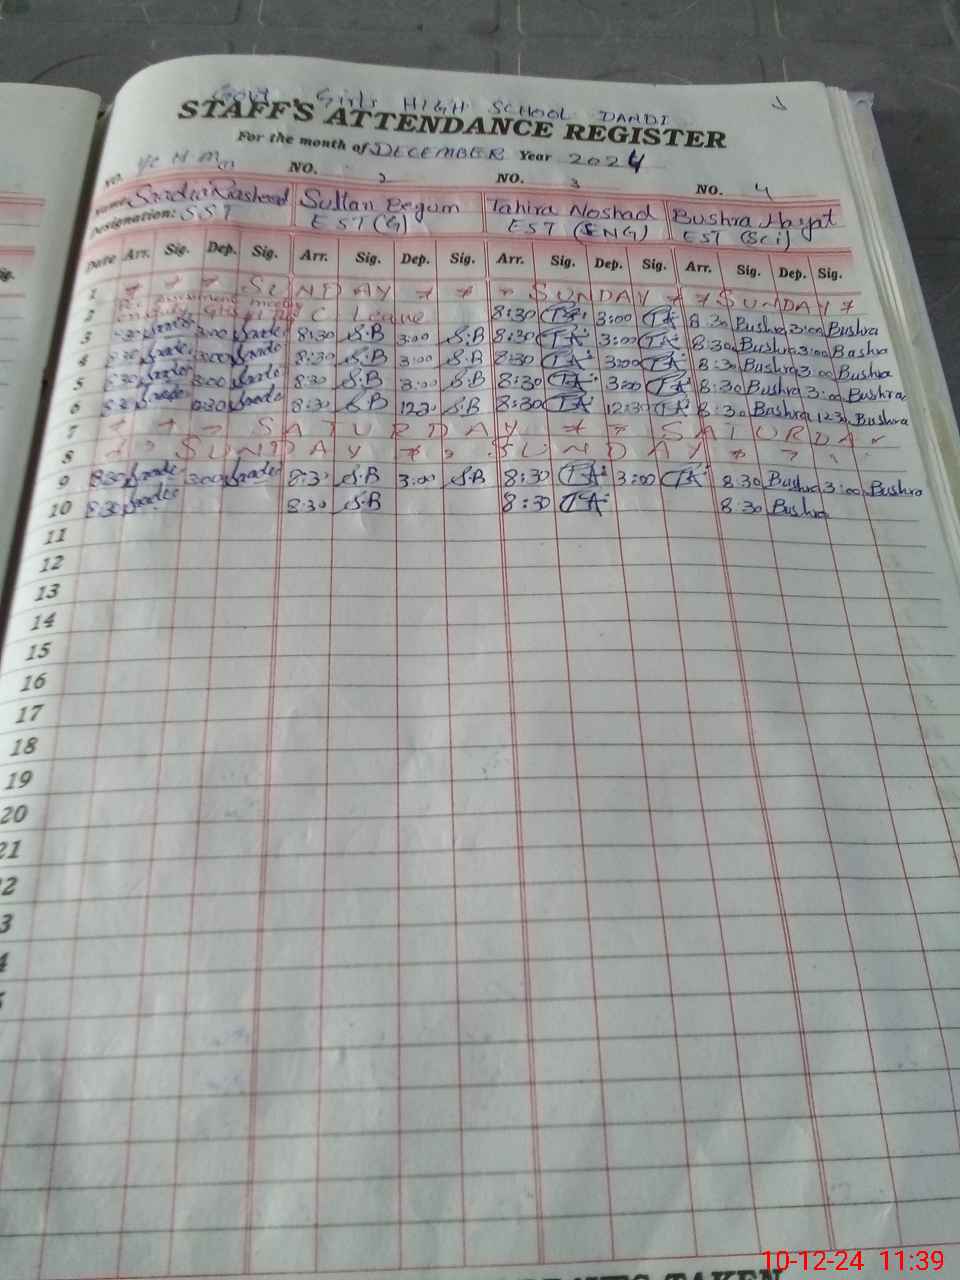 Govt. Girls HIGH SCHOOL DANDI
STAFF'S ATTENDANCE REGISTER
For the month of DECEMBER Year 2024
NO. NO. 2 NO. 3 NO. 4
Name: Saadia Rasheed Sultan Begum Tahira Noshad Bushra Hayat
Designation: SST EST (G) EST (ENG) EST (Sci)
Date Arr. Sig. Dep. Sig. Arr. Sig. Dep. Sig. Arr. Sig. Dep. Sig. Arr. Sig. Dep. Sig.
1 SUNDAY SUNDAY SUNDAY
2 C Leave 8:30 TA 3:00 TA 8:30 Bushra 3:00 Bushra
3 8:30 3:00 8:30 S.B 3:00 S.B 8:30 TA 3:00 TA 8:30 Bushra 3:00 Bushra
4 8:30 3:00 8:30 S.B 3:00 S.B 8:30 TA 3:00 TA 8:30 Bushra 3:00 Bushra
5 8:30 3:00 8:30 S.B 3:00 S.B 8:30 TA 3:00 TA 8:30 Bushra 3:00 Bushra
6 8:30 12:30 8:30 S.B 12:30 S.B 8:30 TA 12:30 TA 8:30 Bushra 12:30 Bushra
7 SATURDAY SATURDAY
8 SUNDAY SUNDAY
9 8:30 3:00 8:30 S.B 3:00 S.B 8:30 TA 3:00 TA 8:30 Bushra 3:00 Bushra
10 8:30 8:30 S.B 8:30 TA 8:30 Bushra
11
12
13
14
15
16
17
18
19
20
21
2
3
4
10-12-24 11:39